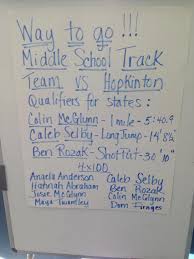 Way to go!!!
Middle School Track
Team VS Hopkinton
Qualifiers for states:
Colin McGlynn - 1 mile - 5:40.9
Caleb Selby - Long Jump - 14' 8½"
Ben Rozak - Shot Put - 30' 10"
4x100
Angela Anderson Caleb Selby
Hannah Abraham Ben Rozak
Josie McGlynn Colin McGlynn
Maya Twombley Dom Firages